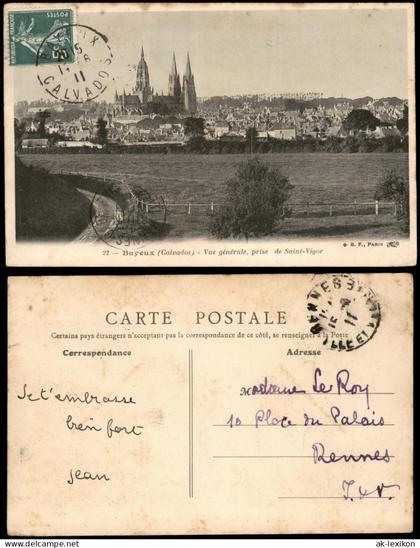 BAYEUX
CALVADOS
11
22 — BAYEUX (Calvados) - Vue générale, prise de Saint-Vigor
B. F., PARIS
CARTE POSTALE
Certains pays étrangers n'acceptant pas la correspondance de ce côté, se renseigner à la Poste
Correspondance
Adresse
Je t'embrasse
bien fort
Jean
Madame Le Roy
10 Place du Palais
Rennes
I. et V.
RENNES
ILLE ET
ak-lexikon